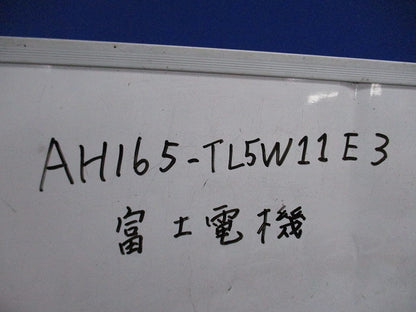 AH165-TL5W11E3
富士電機